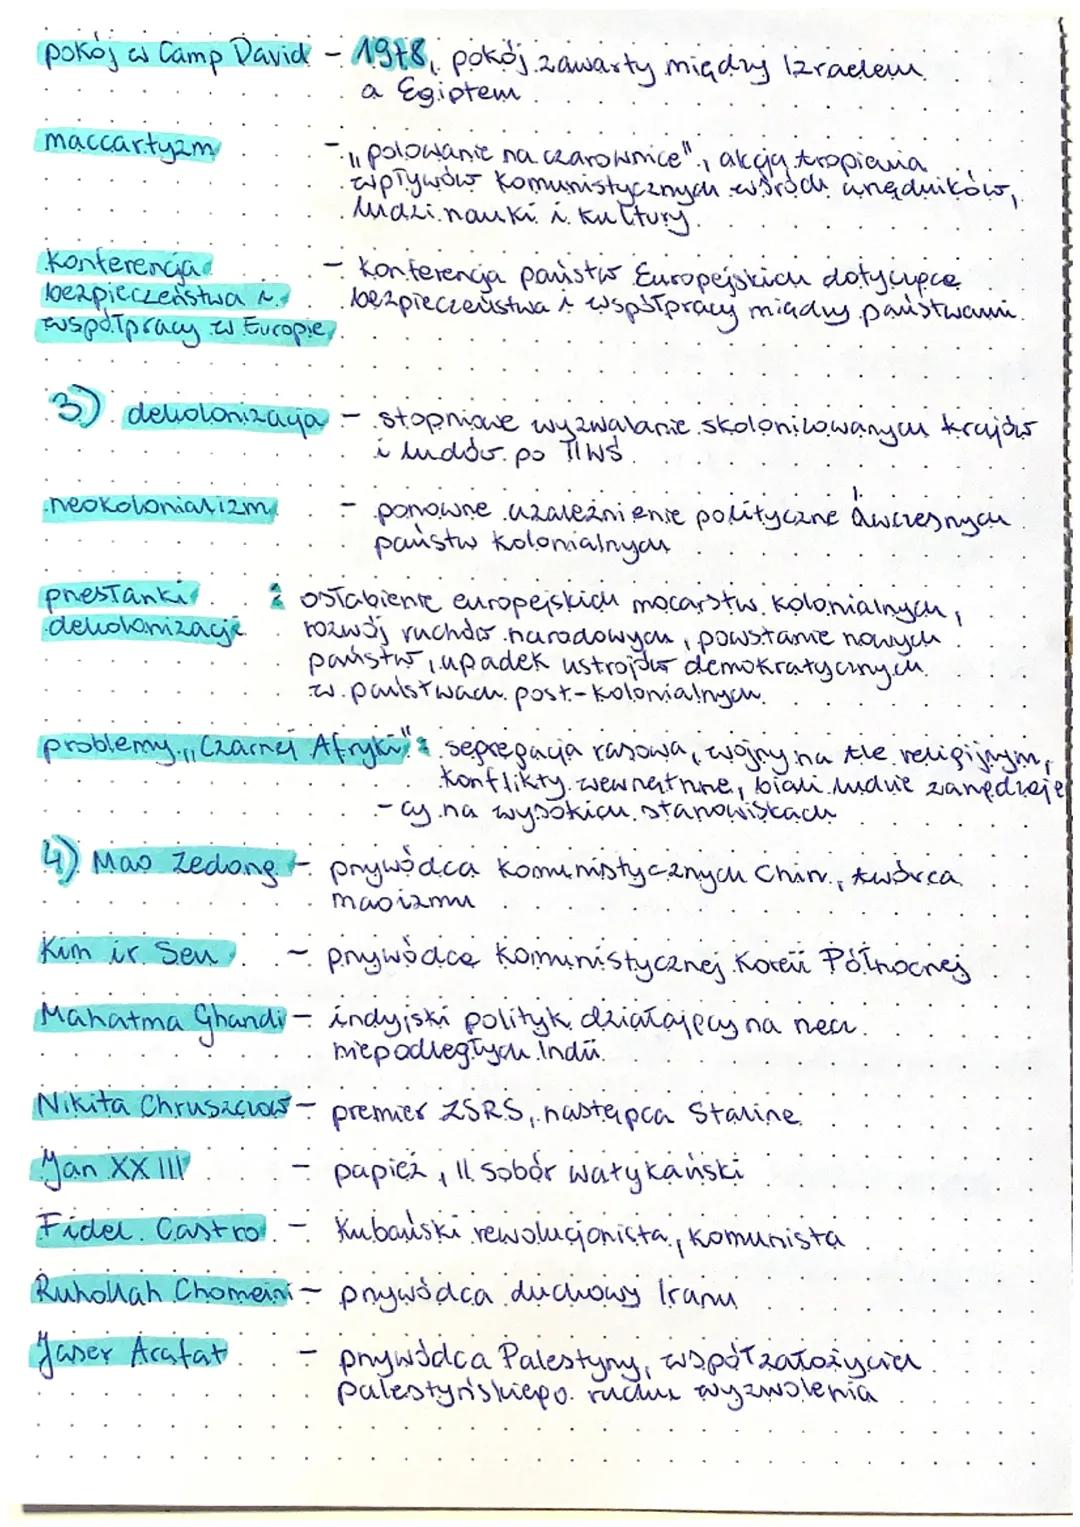 pokój w Camp David - 1978, pokój zawarty między Izraelem
a Egiptem
maccartyzm - „polowanie na czarownice", akcja tropienia
wpływów komunistycznych wśród urzędników,
ludzi nauki i kultury
konferencja - konferencja państw Europejskich dotycząca
bezpieczeństwa i bezpieczeństwa i współpracy między państwami.
współpracy w Europie
3) dekolonizacja - stopniowe wyzwalanie skolonizowanych krajów
i ludów po IIWŚ
neokolonializm - ponowne uzależnienie polityczne ówczesnych
państw kolonialnych
przesłanki : osłabienie europejskich mocarstw kolonialnych,
dekolonizacji rozwój ruchów narodowych, powstanie nowych
państw, upadek ustrojów demokratycznych
w państwach post-kolonialnych.
problemy „Czarnej Afryki": segregacja rasowa, wojny na tle religijnym,
konflikty wewnętrzne, biali ludzie zarządzają
-cy na wysokich stanowiskach
4) Mao Zedong - przywódca komunistycznych Chin, twórca
maoizmu
Kim ir Sen - przywódca komunistycznej Korei Północnej
Mahatma Ghandi - indyjski polityk działający na rzecz
niepodległych Indii
Nikita Chruszczow - premier ZSRS, następca Stalina
Jan XXIII - papież, II sobór watykański
Fidel Castro - kubański rewolucjonista, komunista
Ruhollah Chomeini - przywódca duchowy Iranu
Jaser Arafat - przywódca Palestyny, współzałożyciel
palestyńskiego ruchu wyzwolenia